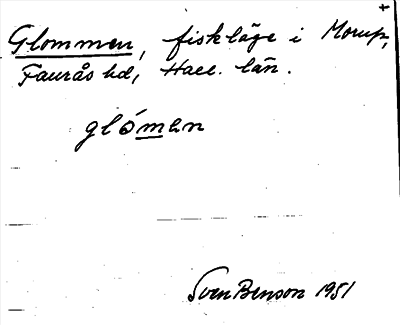 +
Glommen, fiskläge i Morup,
Faurås hd, Hall. län.
glómen
Sven Benson 1951